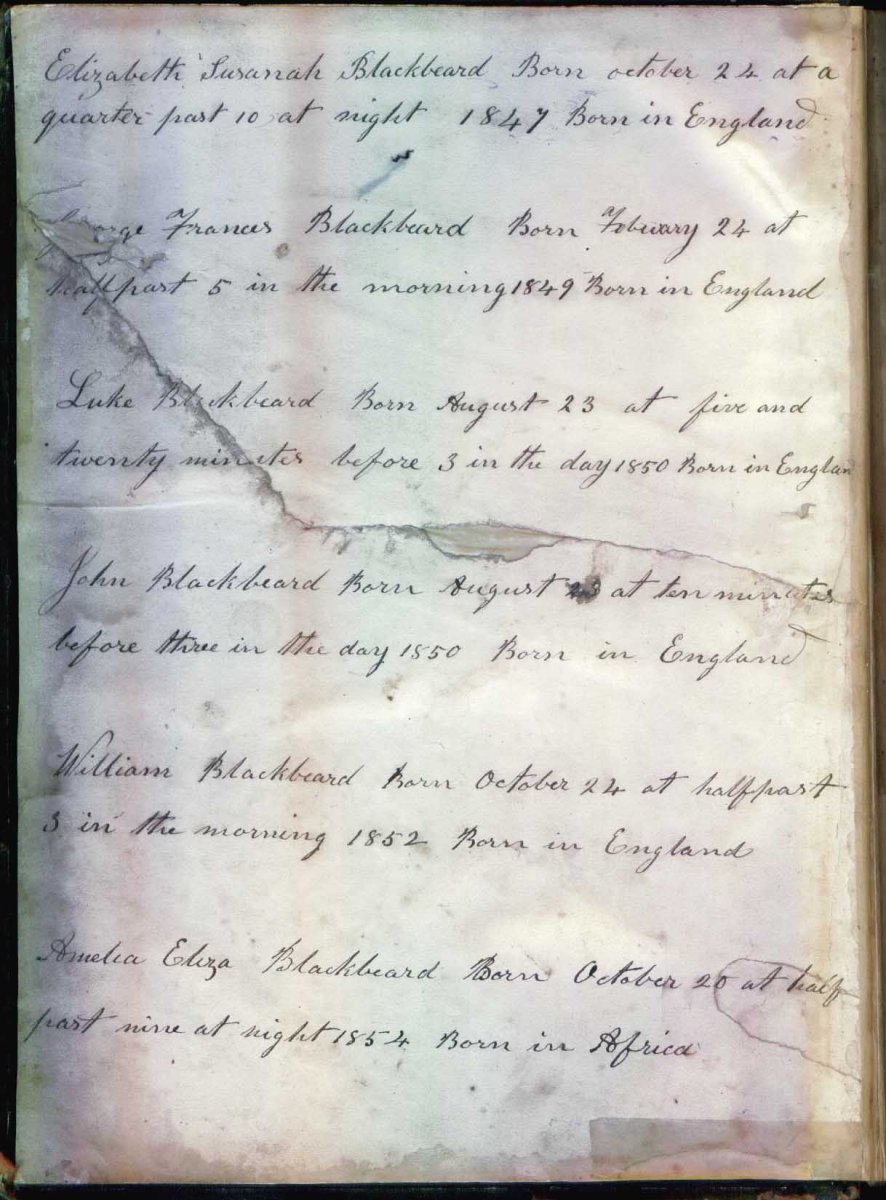 Elizabeth Susanah Blackbeard Born october 24 at a
quarter past 10 at night 1847 Born in England
George Frances Blackbeard Born Febuary 24 at
halfpast 5 in the morning 1849 Born in England
Luke Blackbeard Born August 23 at five and
twenty minutes before 3 in the day 1850 Born in Englan
John Blackbeard Born August 23 at ten minutes
before three in the day 1850 Born in England
William Blackbeard Born October 24 at halfpast
3 in the morning 1852 Born in England
Amelia Eliza Blackbeard Born October 20 at half
past nine at night 1854 Born in Africa